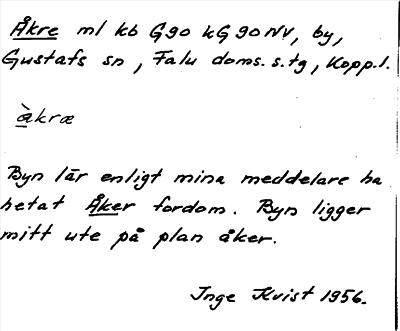 Åkre ml kb G90 kG 90 NV, by,
Gustafs sn, Falu doms. s. tg, Kopp. l.
àkræ
Byn lär enligt mina meddelare ha
hetat Åker fordom. Byn ligger
mitt ute på plan åker.
Inge Kvist 1956.